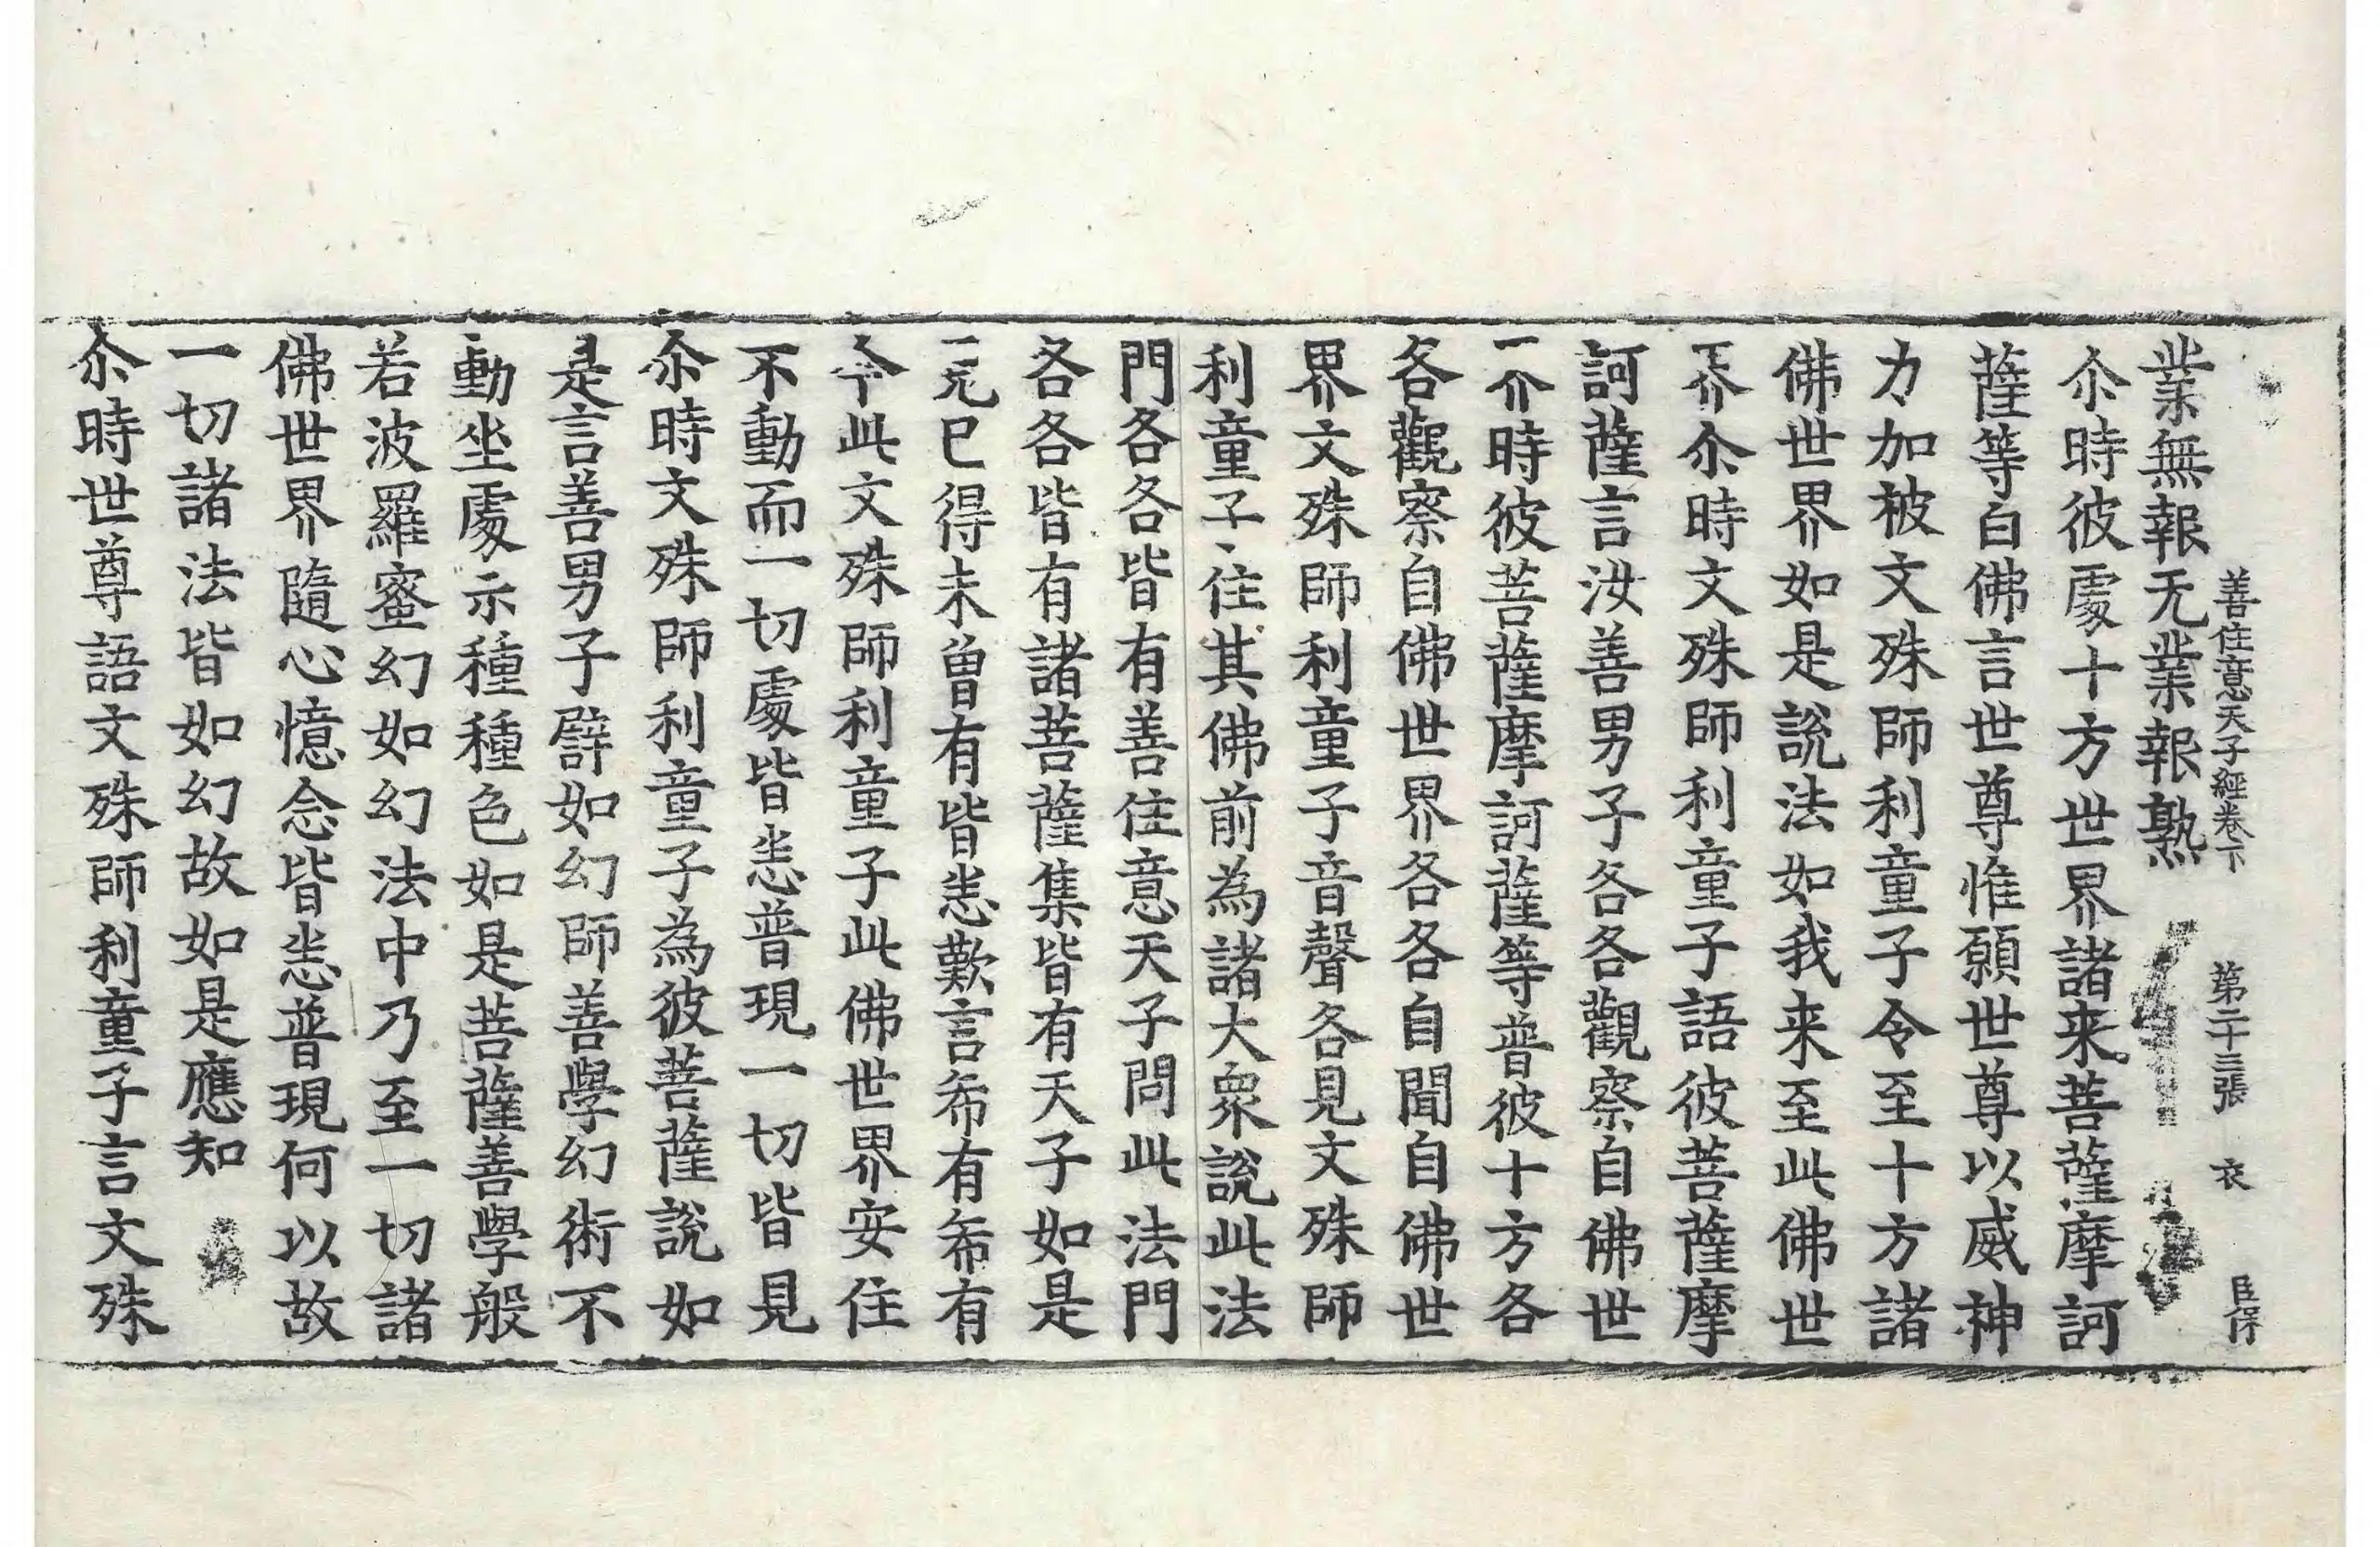 善住意天子經卷下 第二十三張 衣 臣保
業無報无業報熟
尒時彼處十方世界諸来菩薩摩訶
薩等白佛言世尊惟願世尊以威神
力加被文殊師利童子令至十方諸
佛世界如是說法如我来至此佛世
界尒時文殊師利童子語彼菩薩摩
訶薩言汝善男子各各觀察自佛世
界尒時彼菩薩摩訶薩等普彼十方各
各觀察自佛世界各各自聞自佛世
界文殊師利童子音聲各見文殊師
利童子住其佛前為諸大衆說此法
門各各皆有善住意天子問此法門
各各皆有諸菩薩集皆有天子如是
見已得未曾有皆悉歎言希有希有
今此文殊師利童子此佛世界安住
不動而一切處皆悉普現一切皆見
尒時文殊師利童子為彼菩薩說如
是言善男子譬如幻師善學幻術不
動坐處示種種色如是菩薩善學般
若波羅蜜幻如幻法中乃至一切諸
佛世界隨心憶念皆悉普現何以故
一切諸法皆如幻故如是應知
尒時世尊語文殊師利童子言文殊